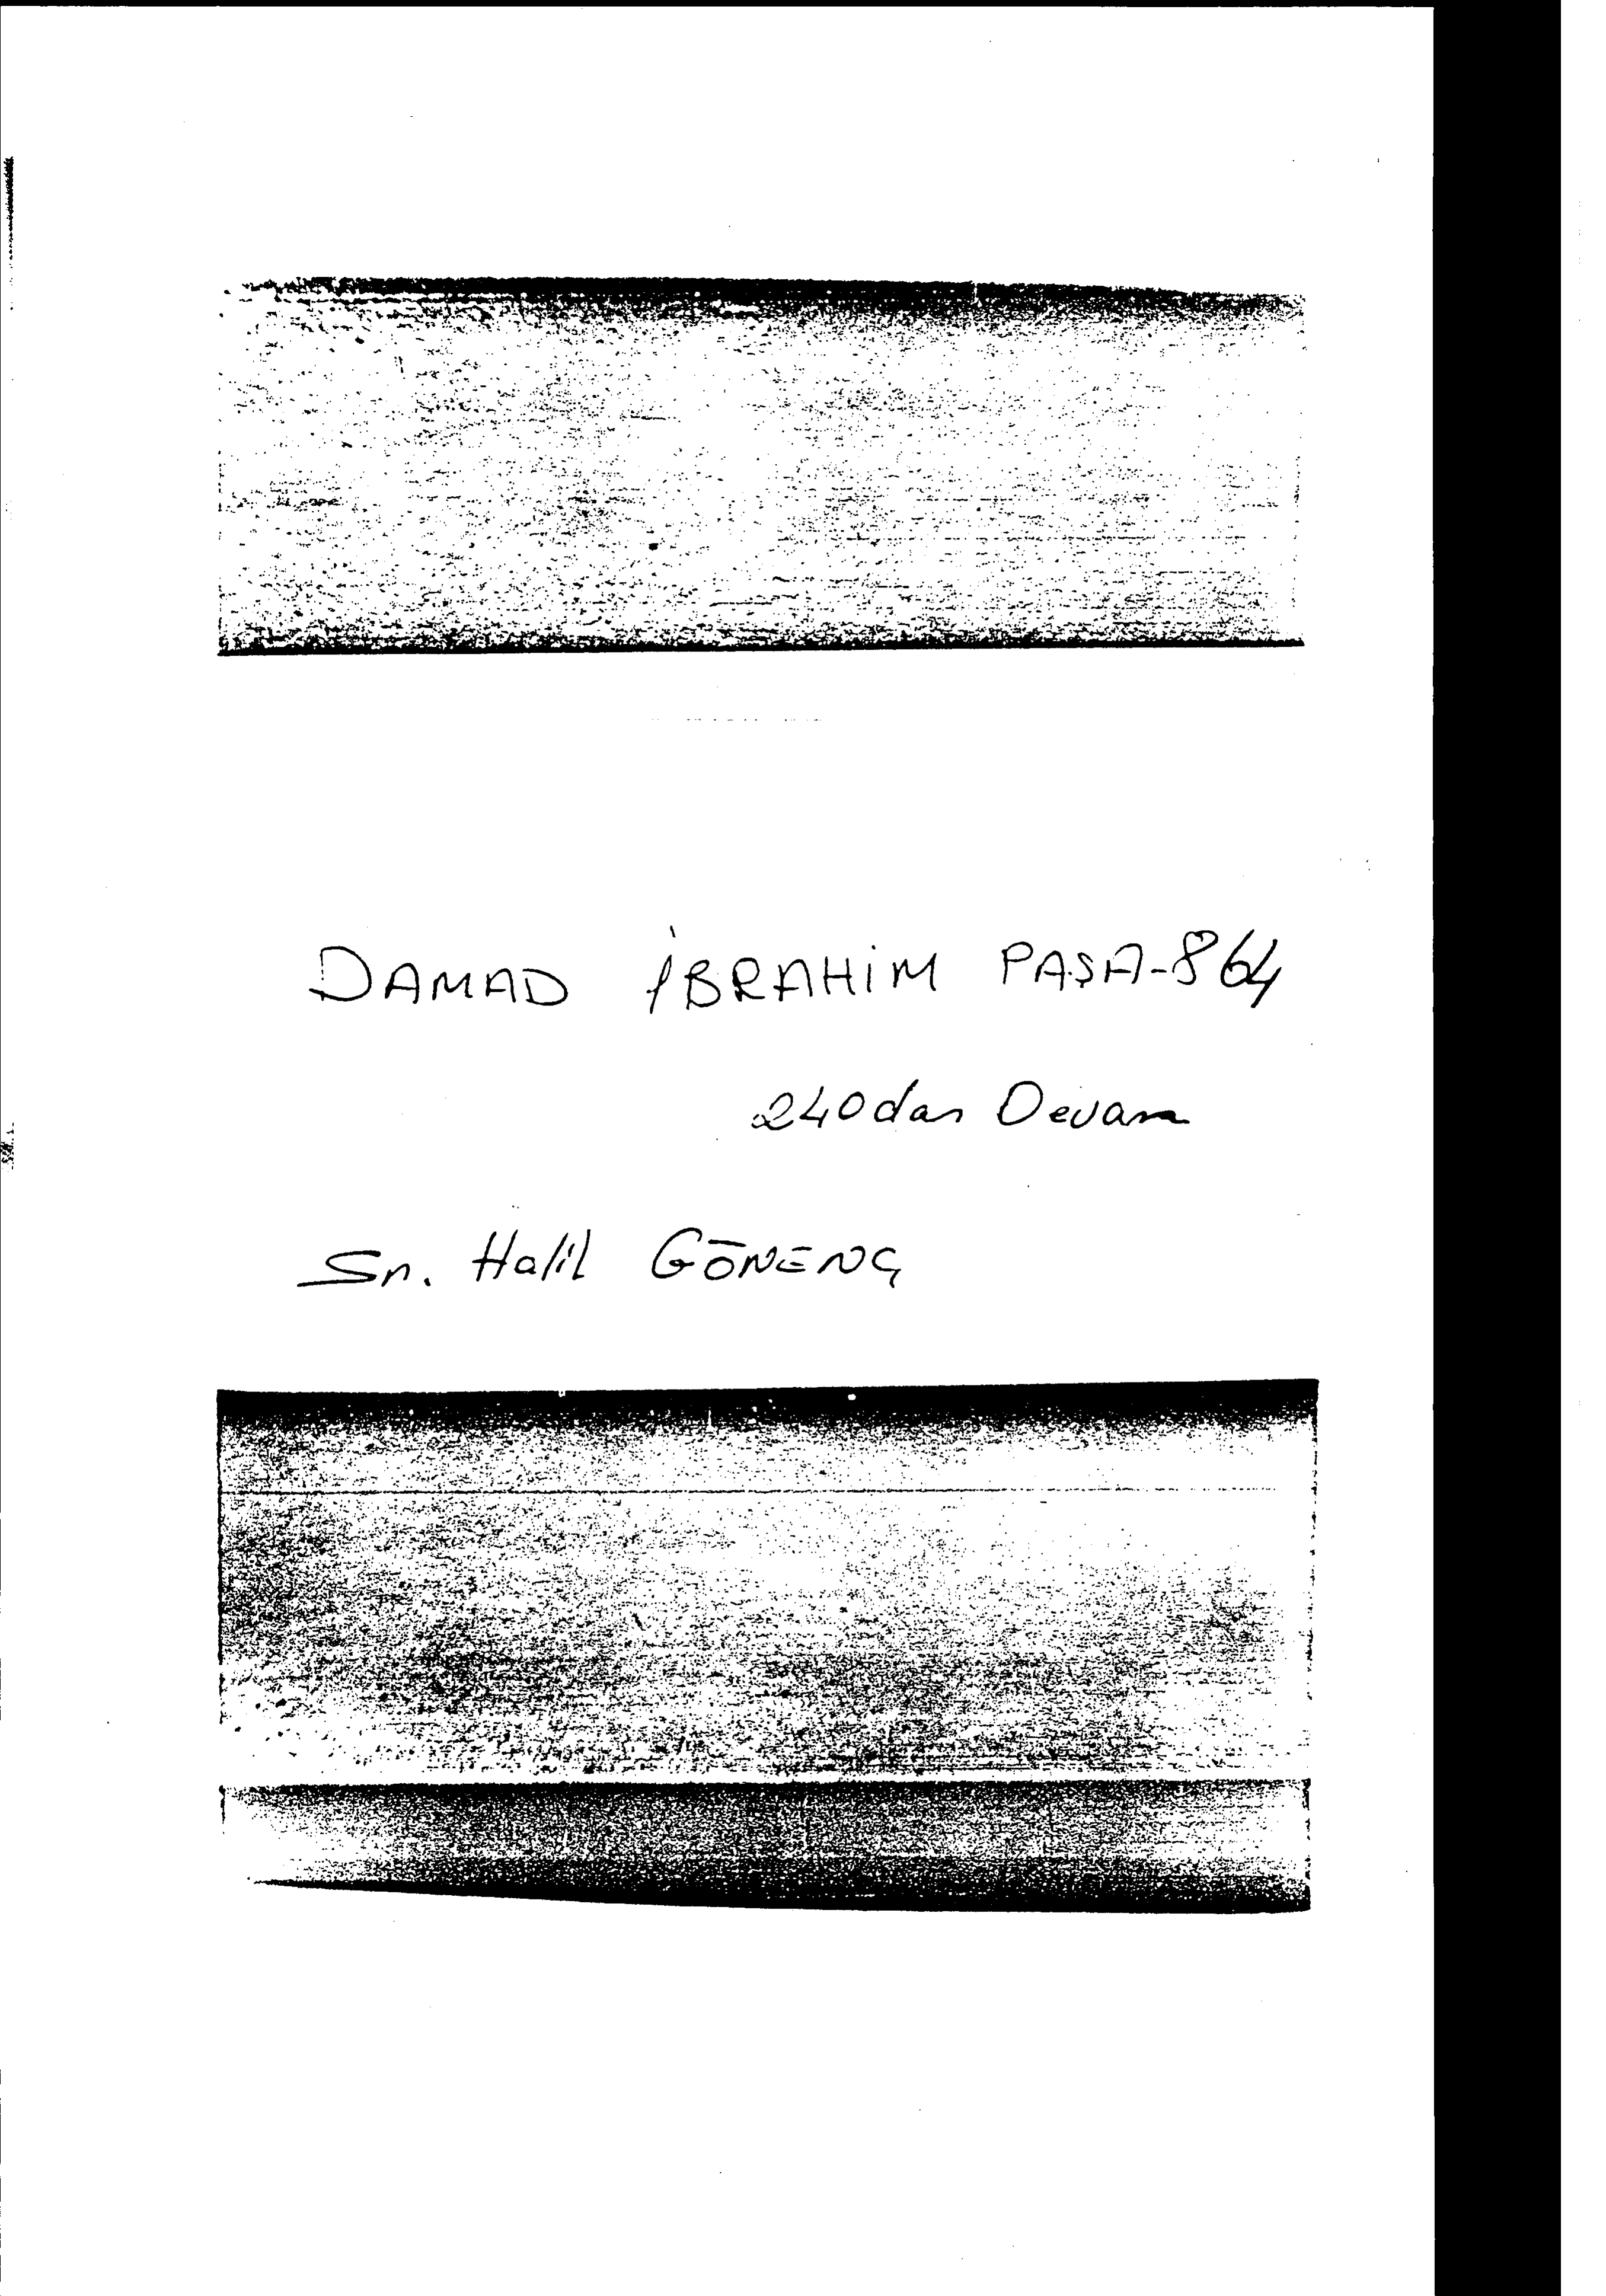 DAMAD İBRAHİM PAŞA-864
240dan Devam
Sn. Halil GÖNENÇ